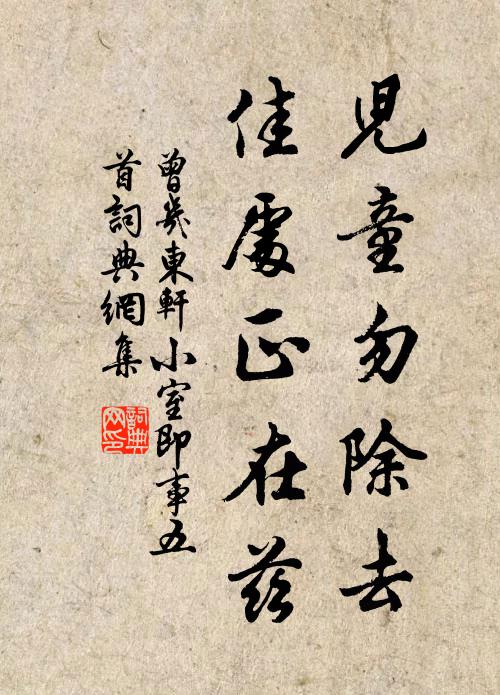 兒童勿除去
佳處正在茲
曾幾東軒小室即事五
首詞典網集
詞典
网印